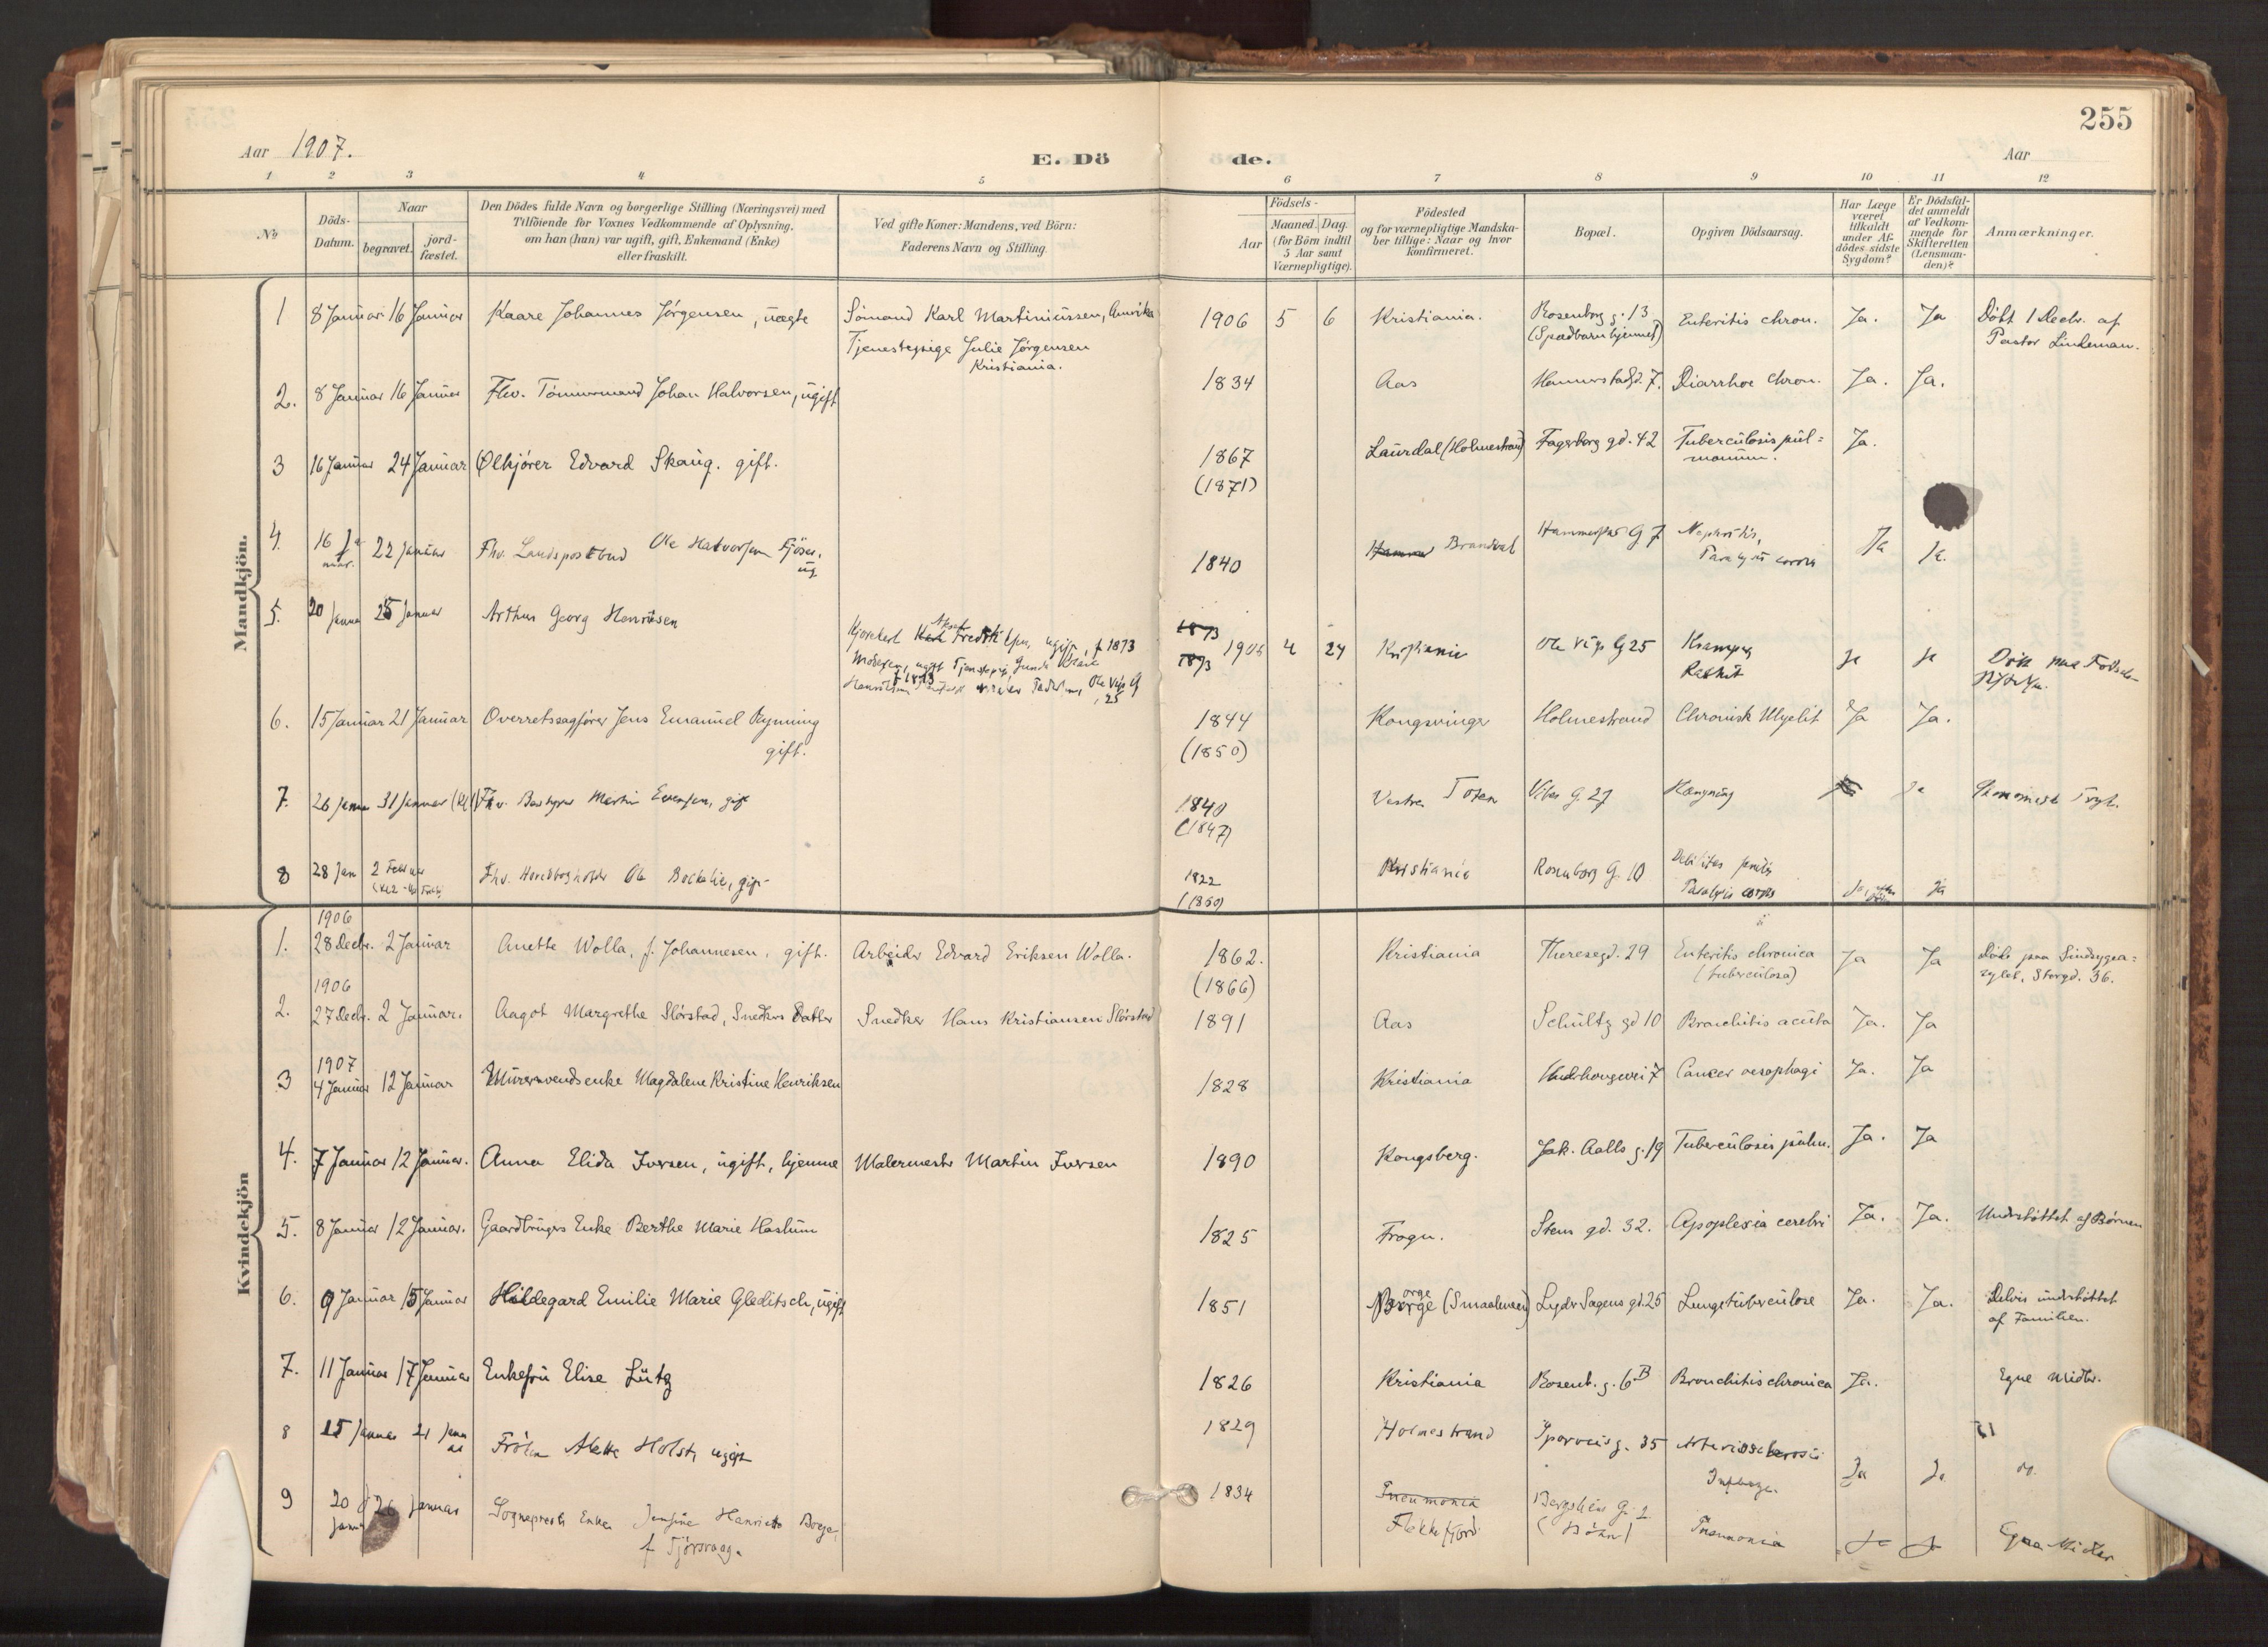 255
Aar 1907.
E. Dö de.
Aar
1 2 3 4 5 6 7 8 9 10 11 12
No
Döds-
Datum.
Naar
begravet.
jord-
fæstet.
Den Dödes fulde Navn og borgerlige Stilling (Næringsvei) med
Tilföiende for Voxnes Vedkommende af Oplysning,
om han (hun) var ugift, gift, Enkemand (Enke)
eller fraskilt.
Ved gifte Koner: Mandens, ved Börn:
Faderens Navn og Stilling.
Födsels-
Aar
Maaned. Dag.
(for Börn indtil
5 Aar samt
Værnepligtige).
Födested
og for værnepligtige Mandska-
ber tillige: Naar og hvor
konfirmeret.
Bopæl.
Opgiven Dödsaarsag.
Har Læge
været
tilkaldt
under Af-
dödes sidste
Sygdom?
Er Dödsfal-
det anmeldt
af Vedkom-
mende for
Skifteretten
(Lensman-
den)?
Anmærkninger.
Mandkjön.
1 8 Januar 16 Januar Kaare Johannes Jørgensen, uægte Sømand Karl Martiniussen, Amerika 1906 5 6 Kristiania. Rosenborg g. 13 Enteritis chron. Ja. Ja Døbt 1 Decbr. af
Tjenestepige Julie Jørgensen (Spædbarnhjemmet) Pastor Lindeman.
Kristiania.
2. 8 Januar 16 Januar Fhv. Tømmermand Johan Halvorsen, ugift 1834 Aas Hammerstadgd. 7. Diarrhoe chron. Ja. Ja.
3 16 Januar 24 Januar Ølkjører Edvard Skaug. gift. 1867 Laurdal (Holmestrand) Fagerborg gd. 42 Tuberculosis pul=
(1871) monum. Ja.
4. 16 Ja
nuar. 22 Januar Fhv. Landspostbud Ole Halvorsen
ug. 1840 Brandval Hammerstad G 7 Nephritis,
Paralysis cordis Ja Ja.
5. 20 Januar 25 Januar Arthur Georg Henriksen
ugift, f 1873
1873
1873 1906 4 24 Kristiania Ole Vigs G 25 Kramper
Rachit Ja Ja
25
6. 15 Januar 21 Januar Overretssagfører Jens Emanuel Rynning 1844 Kongsvinger Holmestrand Chronisk Myelit Ja Ja.
gift. (1850)
7. 26 Januar 31 Januar Fhv. Martin Evensen, gift 1840 Vestre Toten Vibes G. 27 Hængning Ja
(1847)
8 28 Jan 2 Februar Fhv. Ole gift 1822 Kristiania Rosenborg G. 10 Debilitas senilis
(1850) Paralysis cordis Ja
Kvindekjön
1906
1. 28 Decbr. 2 Januar Anette Wolla, f. Johannesen, gift. Arbeider Edvard Eriksen Wolla. 1862. Kristiania Theresegd. 29 Enteritis chronica Ja Ja Døde paa Sindsygea=
(1866) (tuberculosa) sylet, Storgd. 36.
1906
2. 27 Decbr. 2 Januar. Aagot Margrethe Slørstad, Snedkers Datter Snedker Hans Kristiansen Slørstad 1891 Aas Schultz gd 10 Bronchitis acuta Ja. Ja
1907
3 4 Januar 12 Januar Murersvendsenke Magdalene Kristine Henriksen 1828 Kristiania Underhaugsvei 7 Cancer oesophagi Ja. Ja
4. 7 Januar 12 Januar. Anna Elida Iversen, ugift, hjemme Malermester Martin Iversen 1890 Kongsberg. Jak. Aalls g. 19 Tuberculosis pulm. Ja. Ja
5. 8 Januar 12 Januar. Gaardbrugers Enke Berthe Marie Haslum 1825 Frogn. Stens gd. 32. Apoplexia cerebri Ja. Ja. Understøttet af Børnene
6. 9 Januar 15 Januar Hildegard Emilie Marie Gleditsch, ugift 1851 Borge (Smaalenene) Lyder Sagens gd. 25 Lungetuberculose Ja. Ja. Delvis understøttet
af Familien.
7. 11 Januar 17 Januar Enkefru Elise Lütz 1826 Kristiania Rosenb. g. 6B Bronchitis chronica Ja. Egne Midler.
8 15 Januar 21 Januar Frøken Alette Holst, ugift 1829 Holmestrand Sporveisg. 35 Arteriosclerosis Ja Ja
9 20
Januar 26 Januar Sogneprests Enke Jensine Henriette
f Tjørsvaag. 1834 Pneumonia
Flekkefjord. Bergslien G. 2 Pneumonia Ja Ja Egne Midler